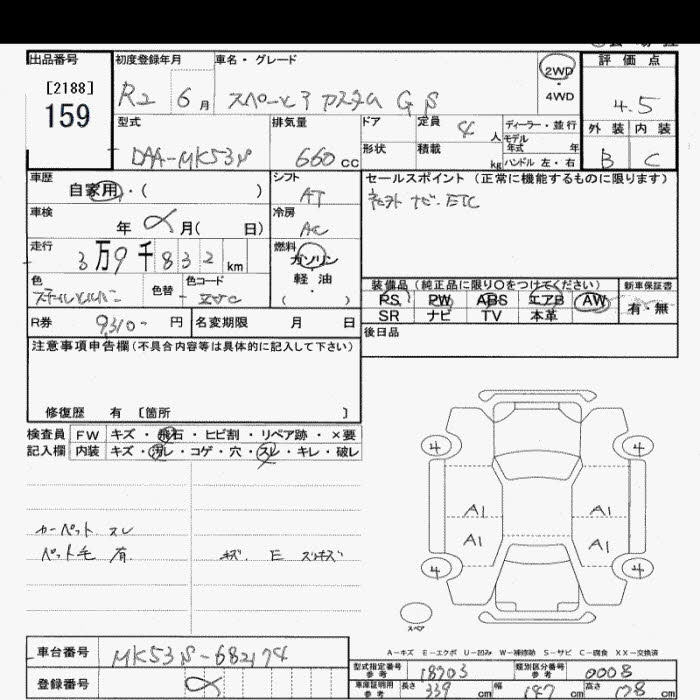 出品番号 初度登録年月 車名・グレード 評価点
[2188] 159 R2 6月 スペーシア カスタム GS 2WD・4WD 4.5
型式 排気量 ドア 定員 4人 ディーラー・並行 外装 内装
DAA-MK53S 660cc 形状 積載 kg モデル年式 年 ハンドル 左・右 B C
車歴 自家用・( ) シフト AT セールスポイント(正常に機能するものに限ります)
車検 年 月( 日) 冷房 AC ナビ.ETC
走行 3万9千832km 燃料 ガソリン 軽油 ( )
色 色替 色コード 装備品(純正品に限り○をつけてください) 新車保証書
PS PW ABS エアB AW 有・無
R券 9310-円 名変期限 月 日 SR ナビ TV 本革
注意事項申告欄(不具合内容等は具体的に記入して下さい) 後日品
修復歴 有 〔箇所 〕
検査員 FW キズ・飛石・ヒビ割・リペア跡・×要
記入欄 内装 キズ・汚レ・コゲ・穴・スレ・キレ・破レ
4 4
A1 A1
カーペット スレ
A1 A1
ペット毛 有. キズ. E スリキズ
4 4
スペア
A-キズ E-エクボ U-凹み W-補修跡 S-サビ C-腐食 XX-交換済
車台番号 MK53S-682174
型式指定番号 参考 18703 類別区分番号 参考 0008
登録番号
車庫証明用 参考 長さ 339cm 幅 147cm 高さ 178cm